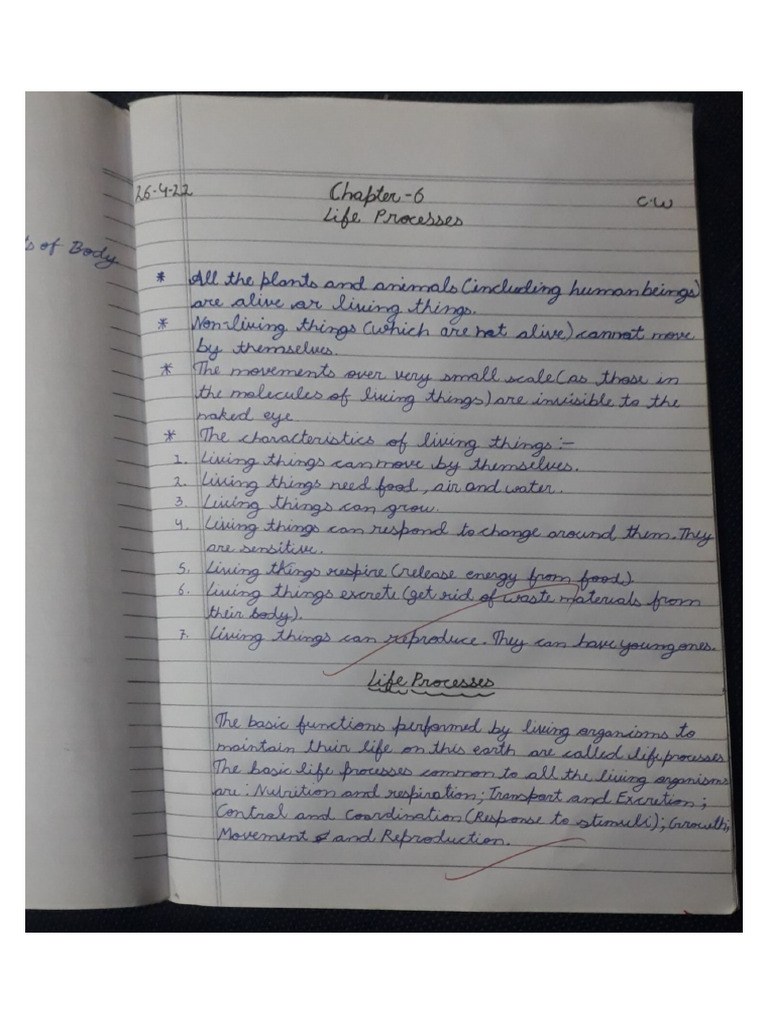 26-4-22 Chapter-6 C.W
Life Processes
of Body
* All the plants and animals (including human beings)
are alive or living things.
* Non-living things (which are not alive) cannot move
by themselves.
* The movements over very small scale (as those in
the molecules of living things) are invisible to the
naked eye.
* The characteristics of living things :-
1. Living things can move by themselves.
2. Living things need food, air and water.
3. Living things can grow.
4. Living things can respond to change around them. They
are sensitive.
5. Living things respire (release energy from food).
6. Living things excrete (get rid of waste materials from
their body).
7. Living things can reproduce. They can have young ones.
Life Processes
The basic functions performed by living organisms to
maintain their life on this earth are called life processes
The basic life processes common to all the living organisms
are : Nutrition and respiration; Transport and Excretion;
Control and Coordination (Response to stimuli); Growth;
Movement and Reproduction.